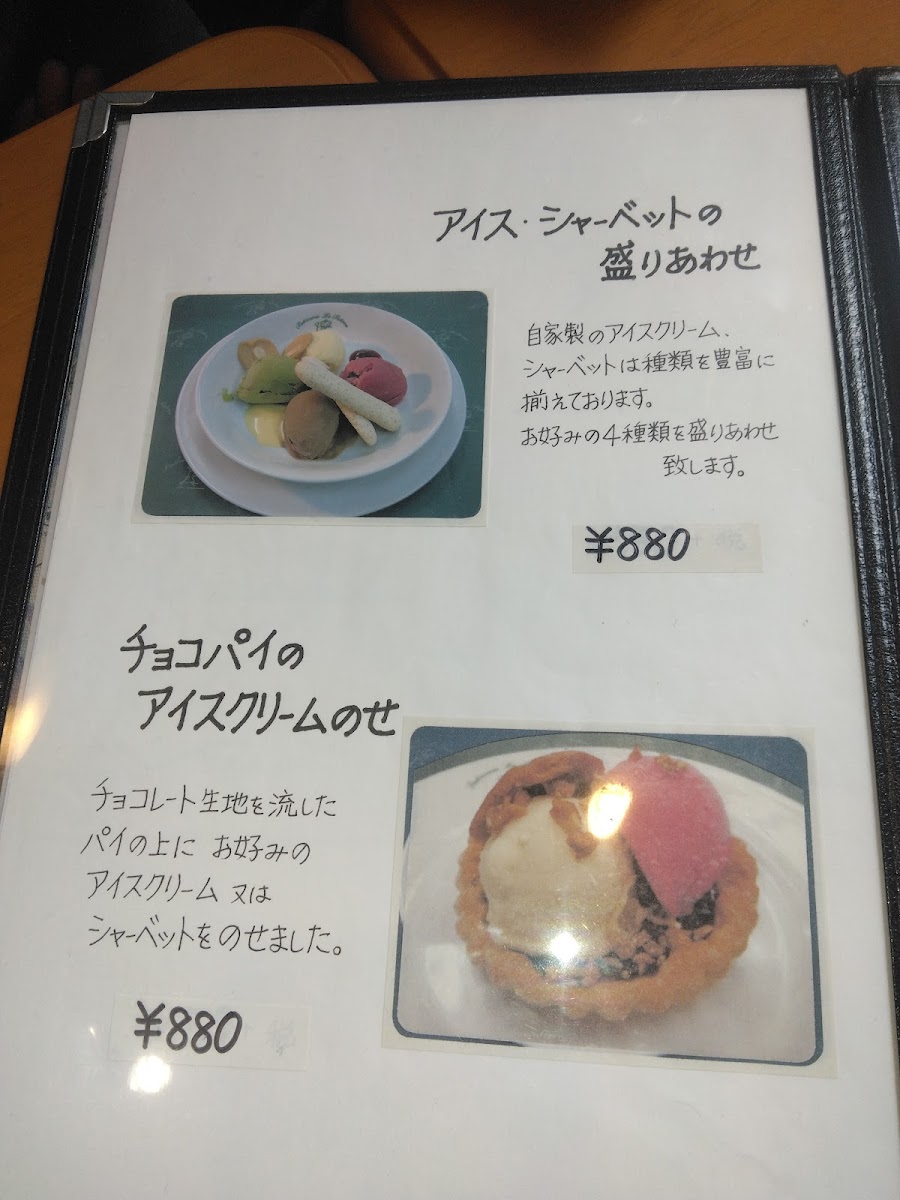 アイス・シャーベットの
盛りあわせ
自家製のアイスクリーム、
シャーベットは種類を豊富に
揃えております。
お好みの4種類を盛りあわせ
致します。
¥880
チョコパイの
アイスクリームのせ
チョコレート生地を流した
パイの上に お好みの
アイスクリーム 又は
シャーベットをのせました。
¥880